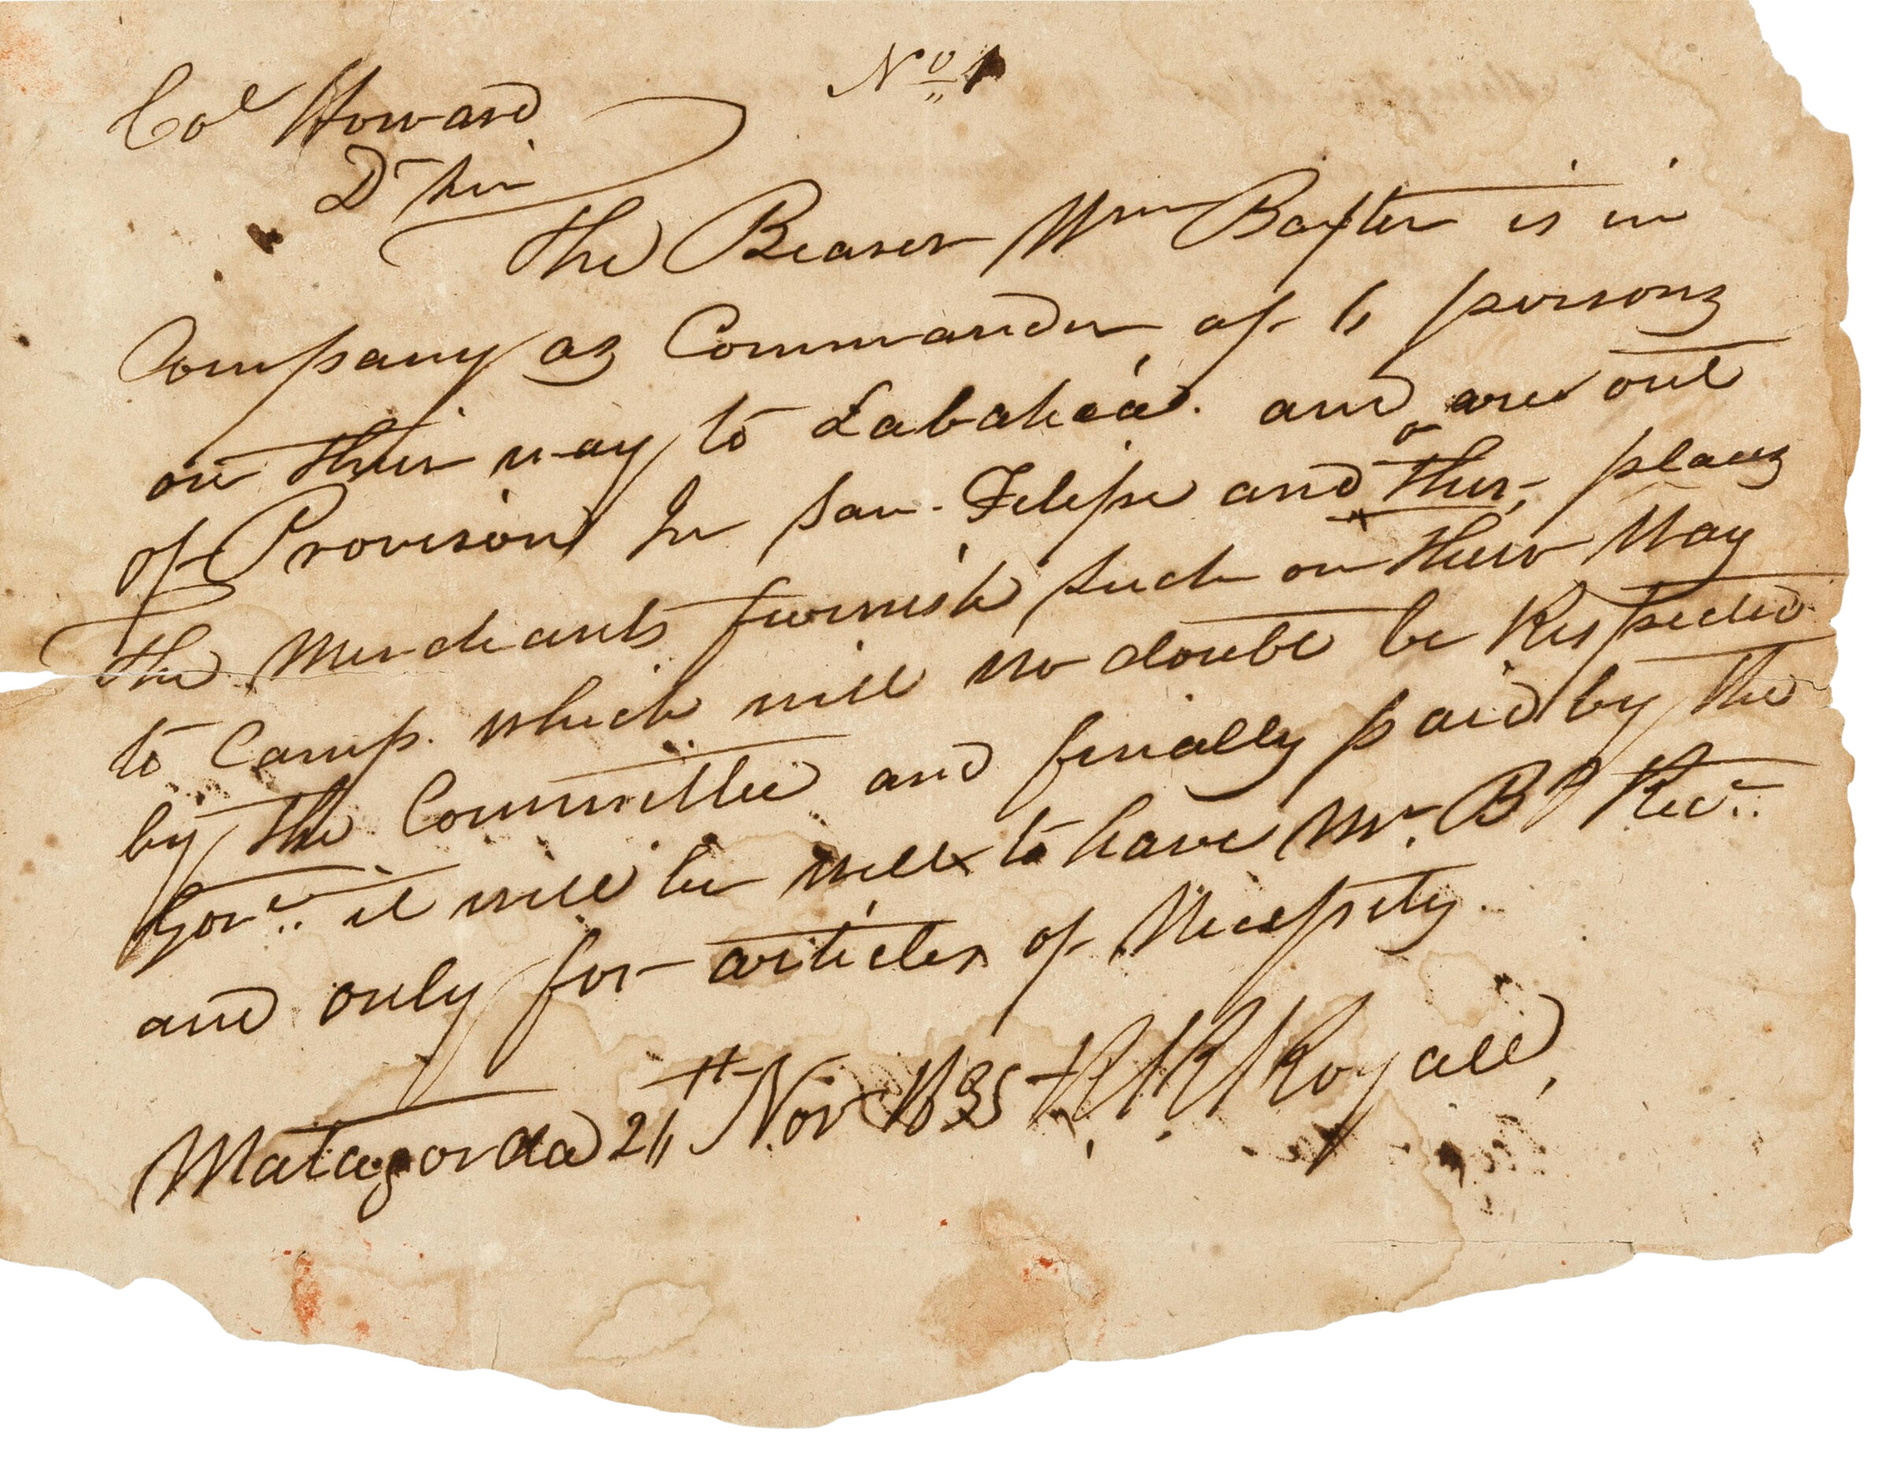 No 1
Col Howard
Dr Sir
The Bearer Wm Baxter is in
Company as Commander of 6 persons
on their way to Labahéa. and are out
of Provision In San. Felipe and other places
the Merchants furnish such on their Way
to Camp. which will no doubt be Respected
by the Committee and finally paid by the
Govr. it will be well to have Mr. Bs Rect.
and only for articles of Necessity.
Matagorda 24th Nov 1835 R. R. Royall,